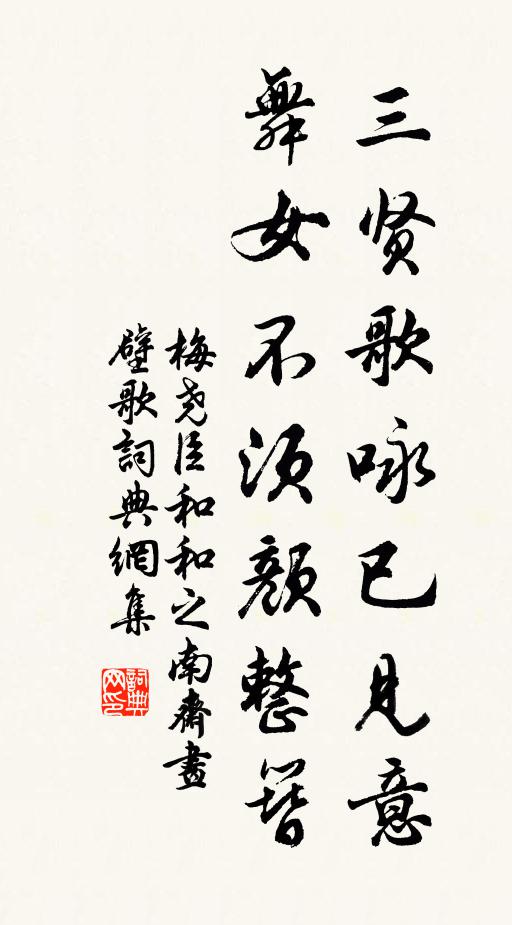 三贤歌咏已见意
舞女不须颜整簪
梅尧臣和和之南斋画
壁歌詞典網集
詞典网印